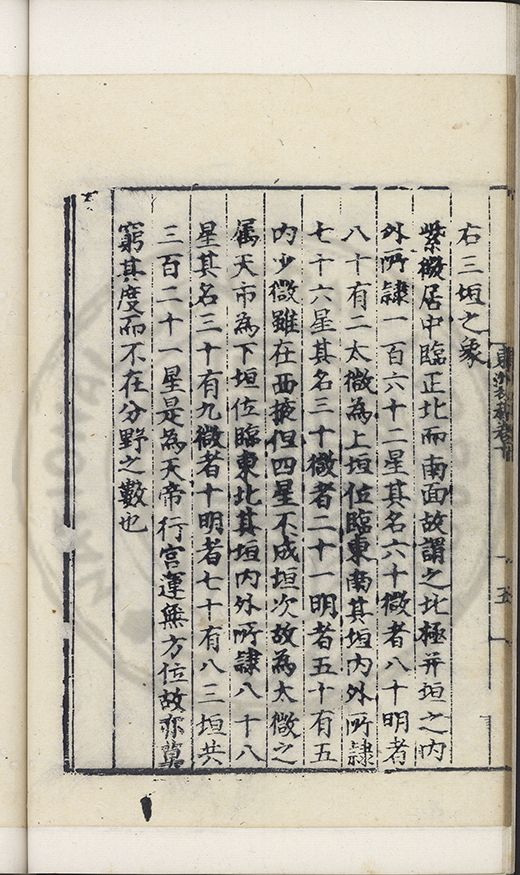 右三垣之象
紫微居中臨正北而南面故謂之北極并垣之内
外所隷一百六十二星其名六十微者八十明者
八十有二太微為上垣位臨東南其垣内外所隷
七十六星其名三十微者二十一明者五十有五
内少微雖在西掖但四星不成垣次故為太微之
属天市為下垣位臨東北其垣内外所隷八十八
星其名三十有九微者十明者七十有八三垣共
三百二十一星是為天帝行宫運無方位故亦莫
窮其度而不在分野之數也
五